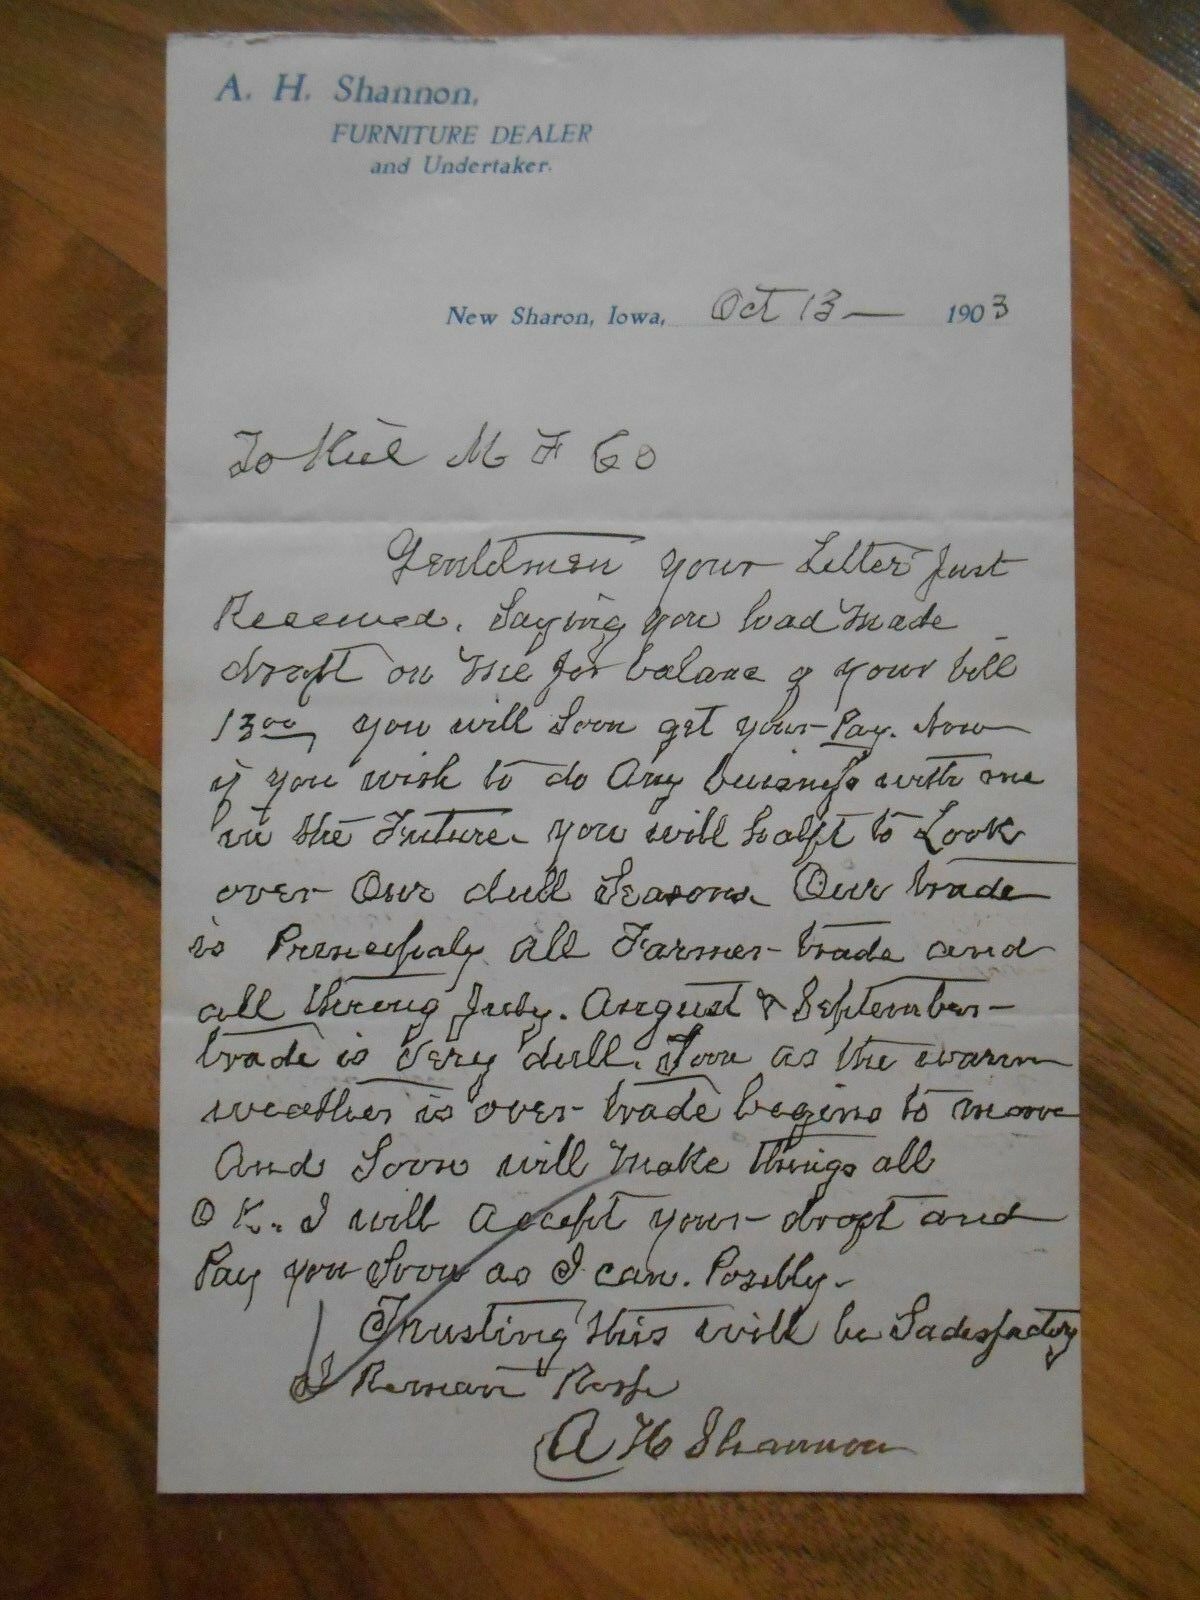 A. H. Shannon,
FURNITURE DEALER
and Undertaker.
New Sharon, Iowa, Oct 13 — 1903
To M F Co
Gentlmen your Letter Just
Received. Saying you had made
draft on me for balance of your bill
13.00, you will Soon get your Pay. Now
if you wish to do Any with me
in the Future. you will haft to Look
over Our dull Seasons. Our trade
is all Farmer trade and
all throug July. August & September
trade is Very dull. Soon as the warm
weather is over trade begins to move
And Soon will make things all
O K. I will Accept your draft and
Pay you Soon as I can. Posibly.
Trusting this will be Sadesfactory
I Remain Resp
A H Shannon